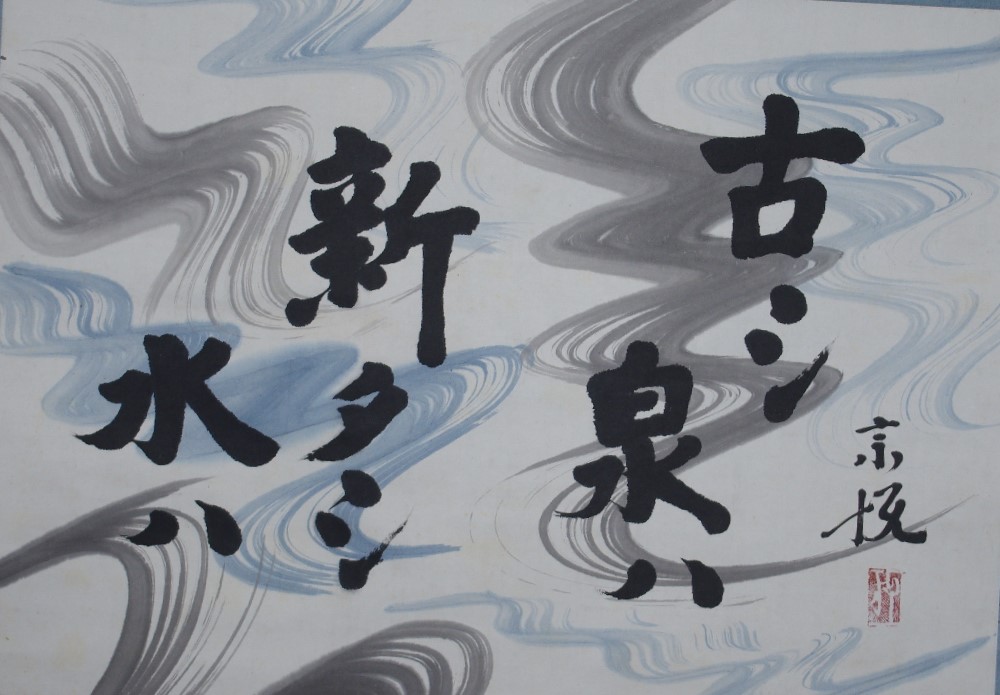 水ハ
新タシ
泉ハ
古シ
宗悦